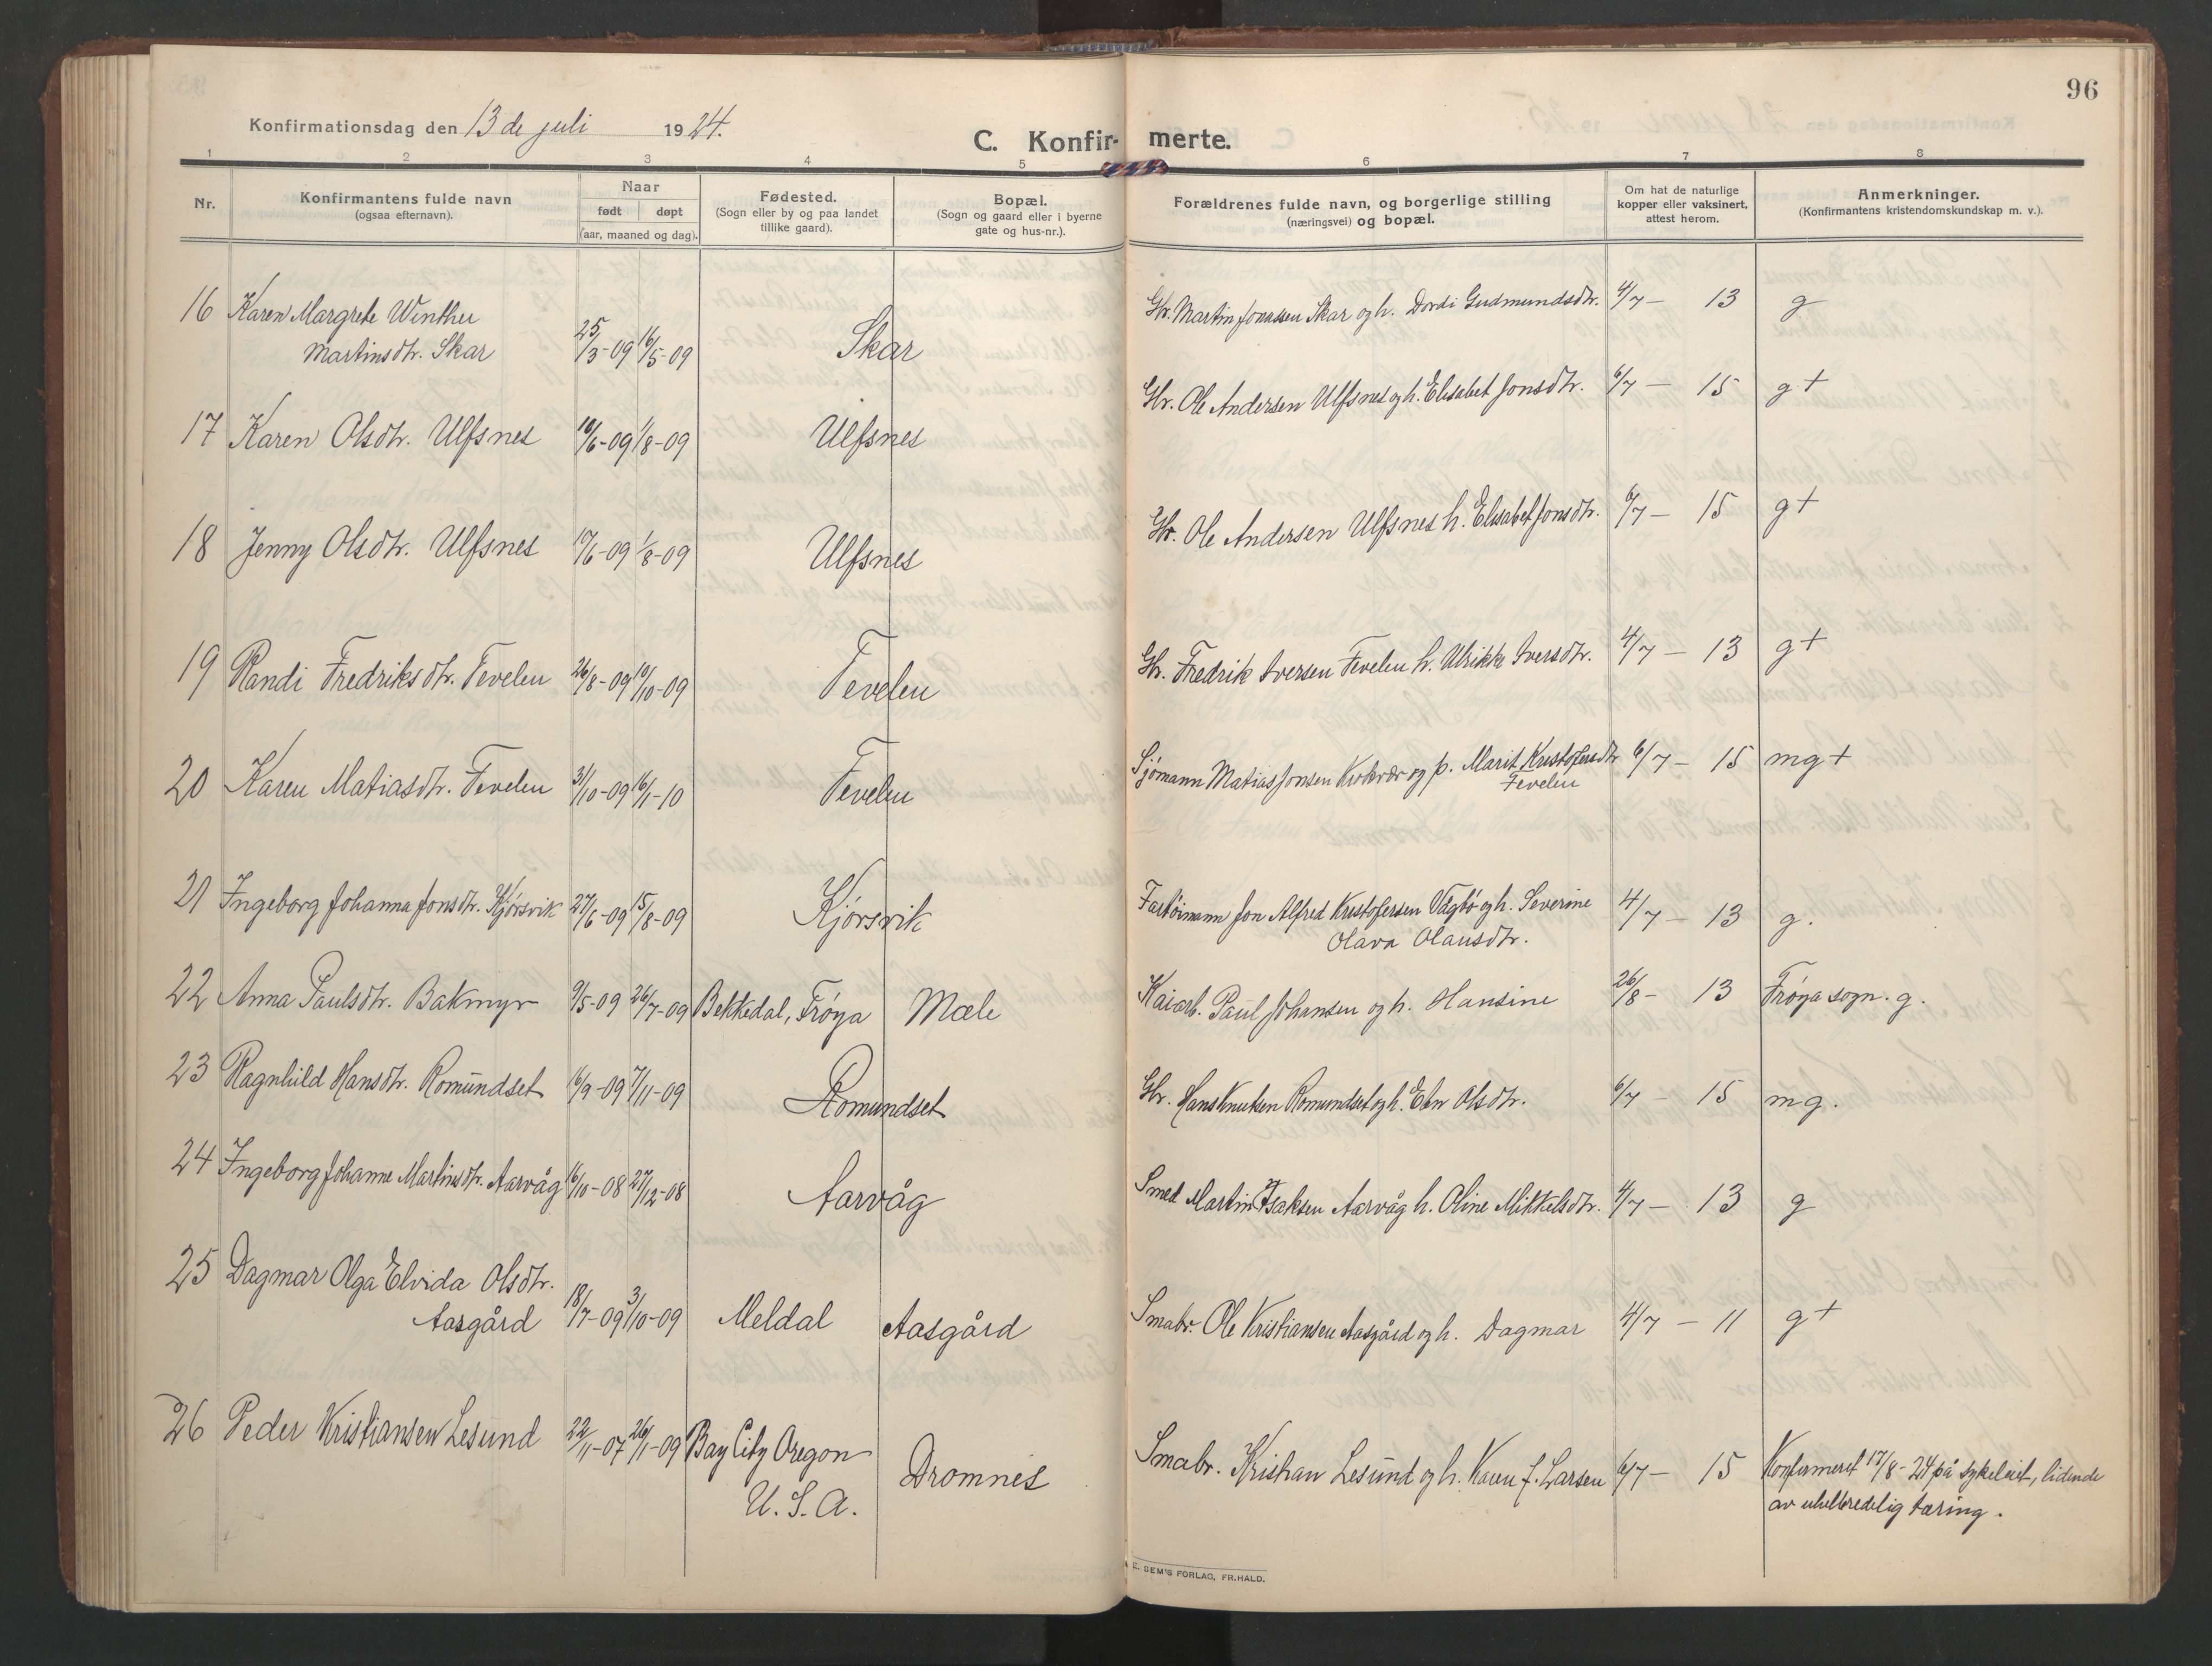 96
Konfirmationsdag den 13 de juli 1924.
C. Konfir- merte.
1 2 3 4 5 6 7 8
Nr.
Konfirmantens fulde navn
(ogsaa efternavn).
Naar
født døpt
(aar, maaned og dag).
Fødested.
(Sogn eller by og paa landet
tillike gaard).
Bopæl.
(Sogn og gaard eller i byerne
gate og hus-nr.).
Forældrenes fulde navn, og borgerlige stilling
(næringsvei) og bopæl.
Om hat de naturlige
kopper eller vaksinert,
attest herom.
Anmerkninger.
(Konfirmantens kristendomskundskap m. v.).
16 Karen Margrete Winther
Martinsdtr. Skar 25/3-09 16/5-09 Skar Gbr. Martin Jonassen Skar og h. Dordi Gudmundsdtr. 4/7 - 13 g
17 Karen Olsdtr. Ulfsnes 10/6-09 1/8-09 Ulfsnes Gbr. Ole Andersen Ulfsnes og h. Elisabet Jonsdtr. 6/7 - 15 g +
18 Jenny Olsdtr. Ulfsnes 10/6-09 1/8-09 Ulfsnes Gbr. Ole Andersen Ulfsnes h. Elisabet Jonsdtr. 6/7 - 15 g +
19 Randi Fredriksdtr. Tevelen 26/8-09 10/10-09 Tevelen Gbr. Fredrik Iversen Tevelen h. Ulrikke Iversdtr. 4/7 - 13 g +
20 Karen Matiasdtr. Tevelen 31/10-09 16/1-10 Tevelen Sjømann Matias Jonsen og p. Marit Kristofersdtr 6/7 - 15 mg +
Tevelen
21 Ingeborg Johanna Jonsdtr. Kjørsvik 27/6-09 15/8-09 Kjørsvik Jon Alfred Kristofersen Vågbø og h. Severine 4/7 - 13 g.
Olava Olausdtr.
22 Anna Paulsdtr. Bakmyr 9/5-09 26/7-09 Bekkedal, Frøya Mæle Kaiarb. Paul Johansen og h. Hansine 26/8 - 13 Frøya sogn. g.
23 Ragnhild Hansdtr. Romundset 16/9-09 7/11-09 Romundset Gbr. Hans Knutsen Romundset og h. Olsdtr. 6/7 - 15 mg.
24 Ingeborg Johanne Martinsdtr. Aarvåg 16/10-08 27/12-08 Aarvåg Smed Martin Isaksen Aarvåg h. Oline Mikkelsdtr. 4/7 - 13 g
25 Dagmar Olga Elvida Olsdtr.
Aasgård 18/7-09 3/10-09 Meldal Aasgård Smabr. Ole Kristiansen Aasgård og h. Dagmar 4/7 - 11 g +
26 Peder Kristiansen Lesund 22/11-07 26/1-09 Bay City Oregon
U. S. A. Dromnes Smabr. Kristian Lesund og h. Karen J. Larsen 6/7 - 15 Konfirmeret 17/8-24 på sykeleiet, lidende
av uhelbredelig tæring.
E. SEM'S FORLAG, FR.HALD.